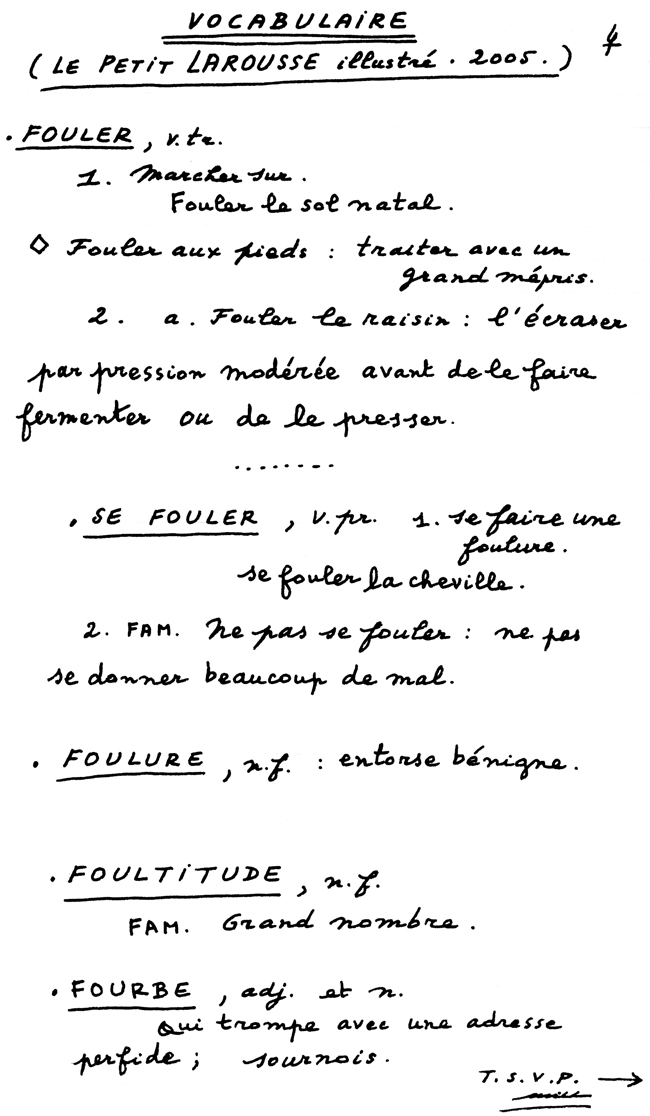 VOCABULAIRE
4
( LE PETIT LAROUSSE illustré . 2005. )
. FOULER , v.tr.
1. Marcher sur.
Fouler le sol natal.
◇ Fouler aux pieds : traiter avec un
grand mépris.
2. a. Fouler le raisin : l'écraser
par pression modérée avant de le faire
fermenter ou de le presser.
........
. SE FOULER , v.pr. 1. se faire une
foulure.
se fouler la cheville.
2. FAM. Ne pas se fouler : ne pas
se donner beaucoup de mal.
. FOULURE , n.f. : entorse bénigne.
. FOULTITUDE , n.f.
FAM. Grand nombre.
. FOURBE , adj. et n.
Qui trompe avec une adresse
perfide ; sournois.
T.S.V.P. →